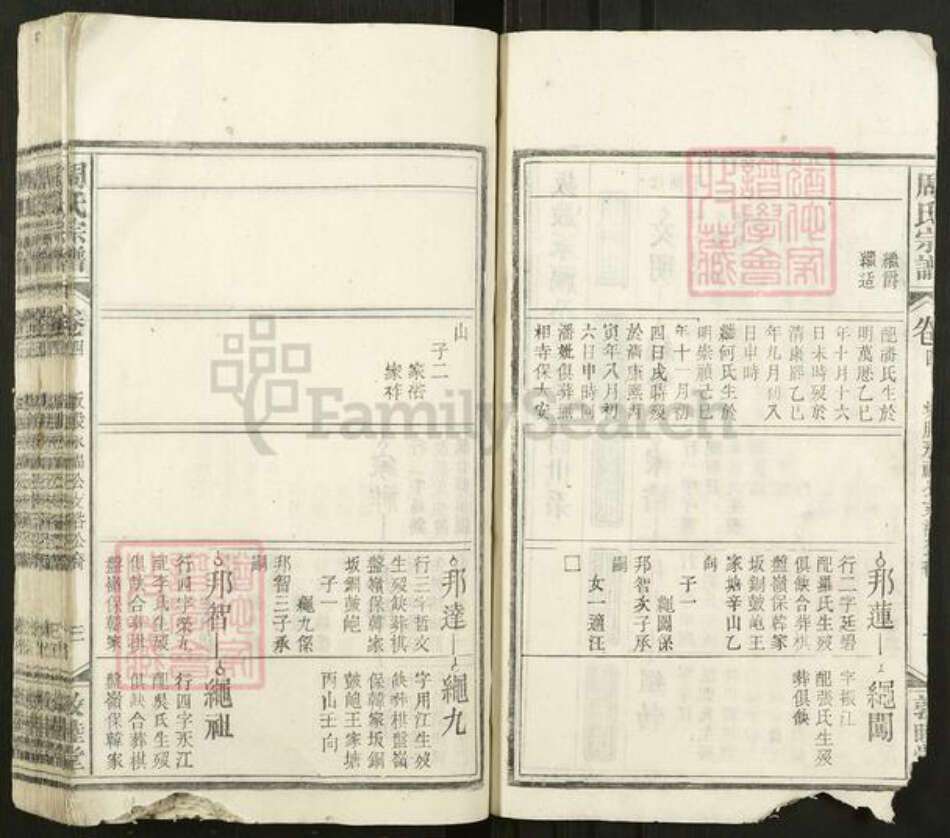 周氏宗譜
卷四
繼爵
繼适
配潘氏生於
明萬厯乙巳
年十月十六
日未時殁於
清康熙乙巳
年九月初八
日申時
繼何氏生於
明崇禎己巳
年十一月初
四日戌時殁
於清康熙丙
寅年八月初
六日申時同
潘妣俱葬熊
相寺保大安
邦蓮
繩闖
行二字廷碧
配羅氏生殁
俱缺合葬棋
盤嶺保韓家
坂銅鼓龟王
家塘辛山乙
向
子一
繩闖係
邦智次子承
嗣
女一適汪
囗
字振江
配張氏生殁
葬俱缺
山
子二
家浴
家祚
邦達
繩九
行三字哲文
生殁缺葬棋
盤嶺保韓家
坂銅鼓龟
子一
繩九係
邦智三子承
嗣
字用江生殁
缺葬棋盤嶺
保韓家坂銅
鼓龟王家塘
丙山壬向
邦智
繩祖
行四字榮九
配李氏生殁
俱缺合葬棋
盤嶺保韓家
行四字永江
配吳氏生殁
俱缺合葬棋
盤嶺保韓家
周氏宗譜
卷四
三
義睦堂
FamilySearch